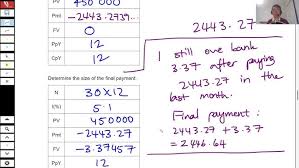 PV 450000
Pmt -2443.2739..
FV 0
PpY 12
CpY 12
Determine the size of the final payment.
N 30x12
I(%) 5.1
PV 450000
Pmt -2443.27
FV -3.37457
PpY 12
2443.27
I still owe bank
3.37 after paying
2443.27 in the
last month.
Final payment:
2443.27 + 3.37
= 2446.64